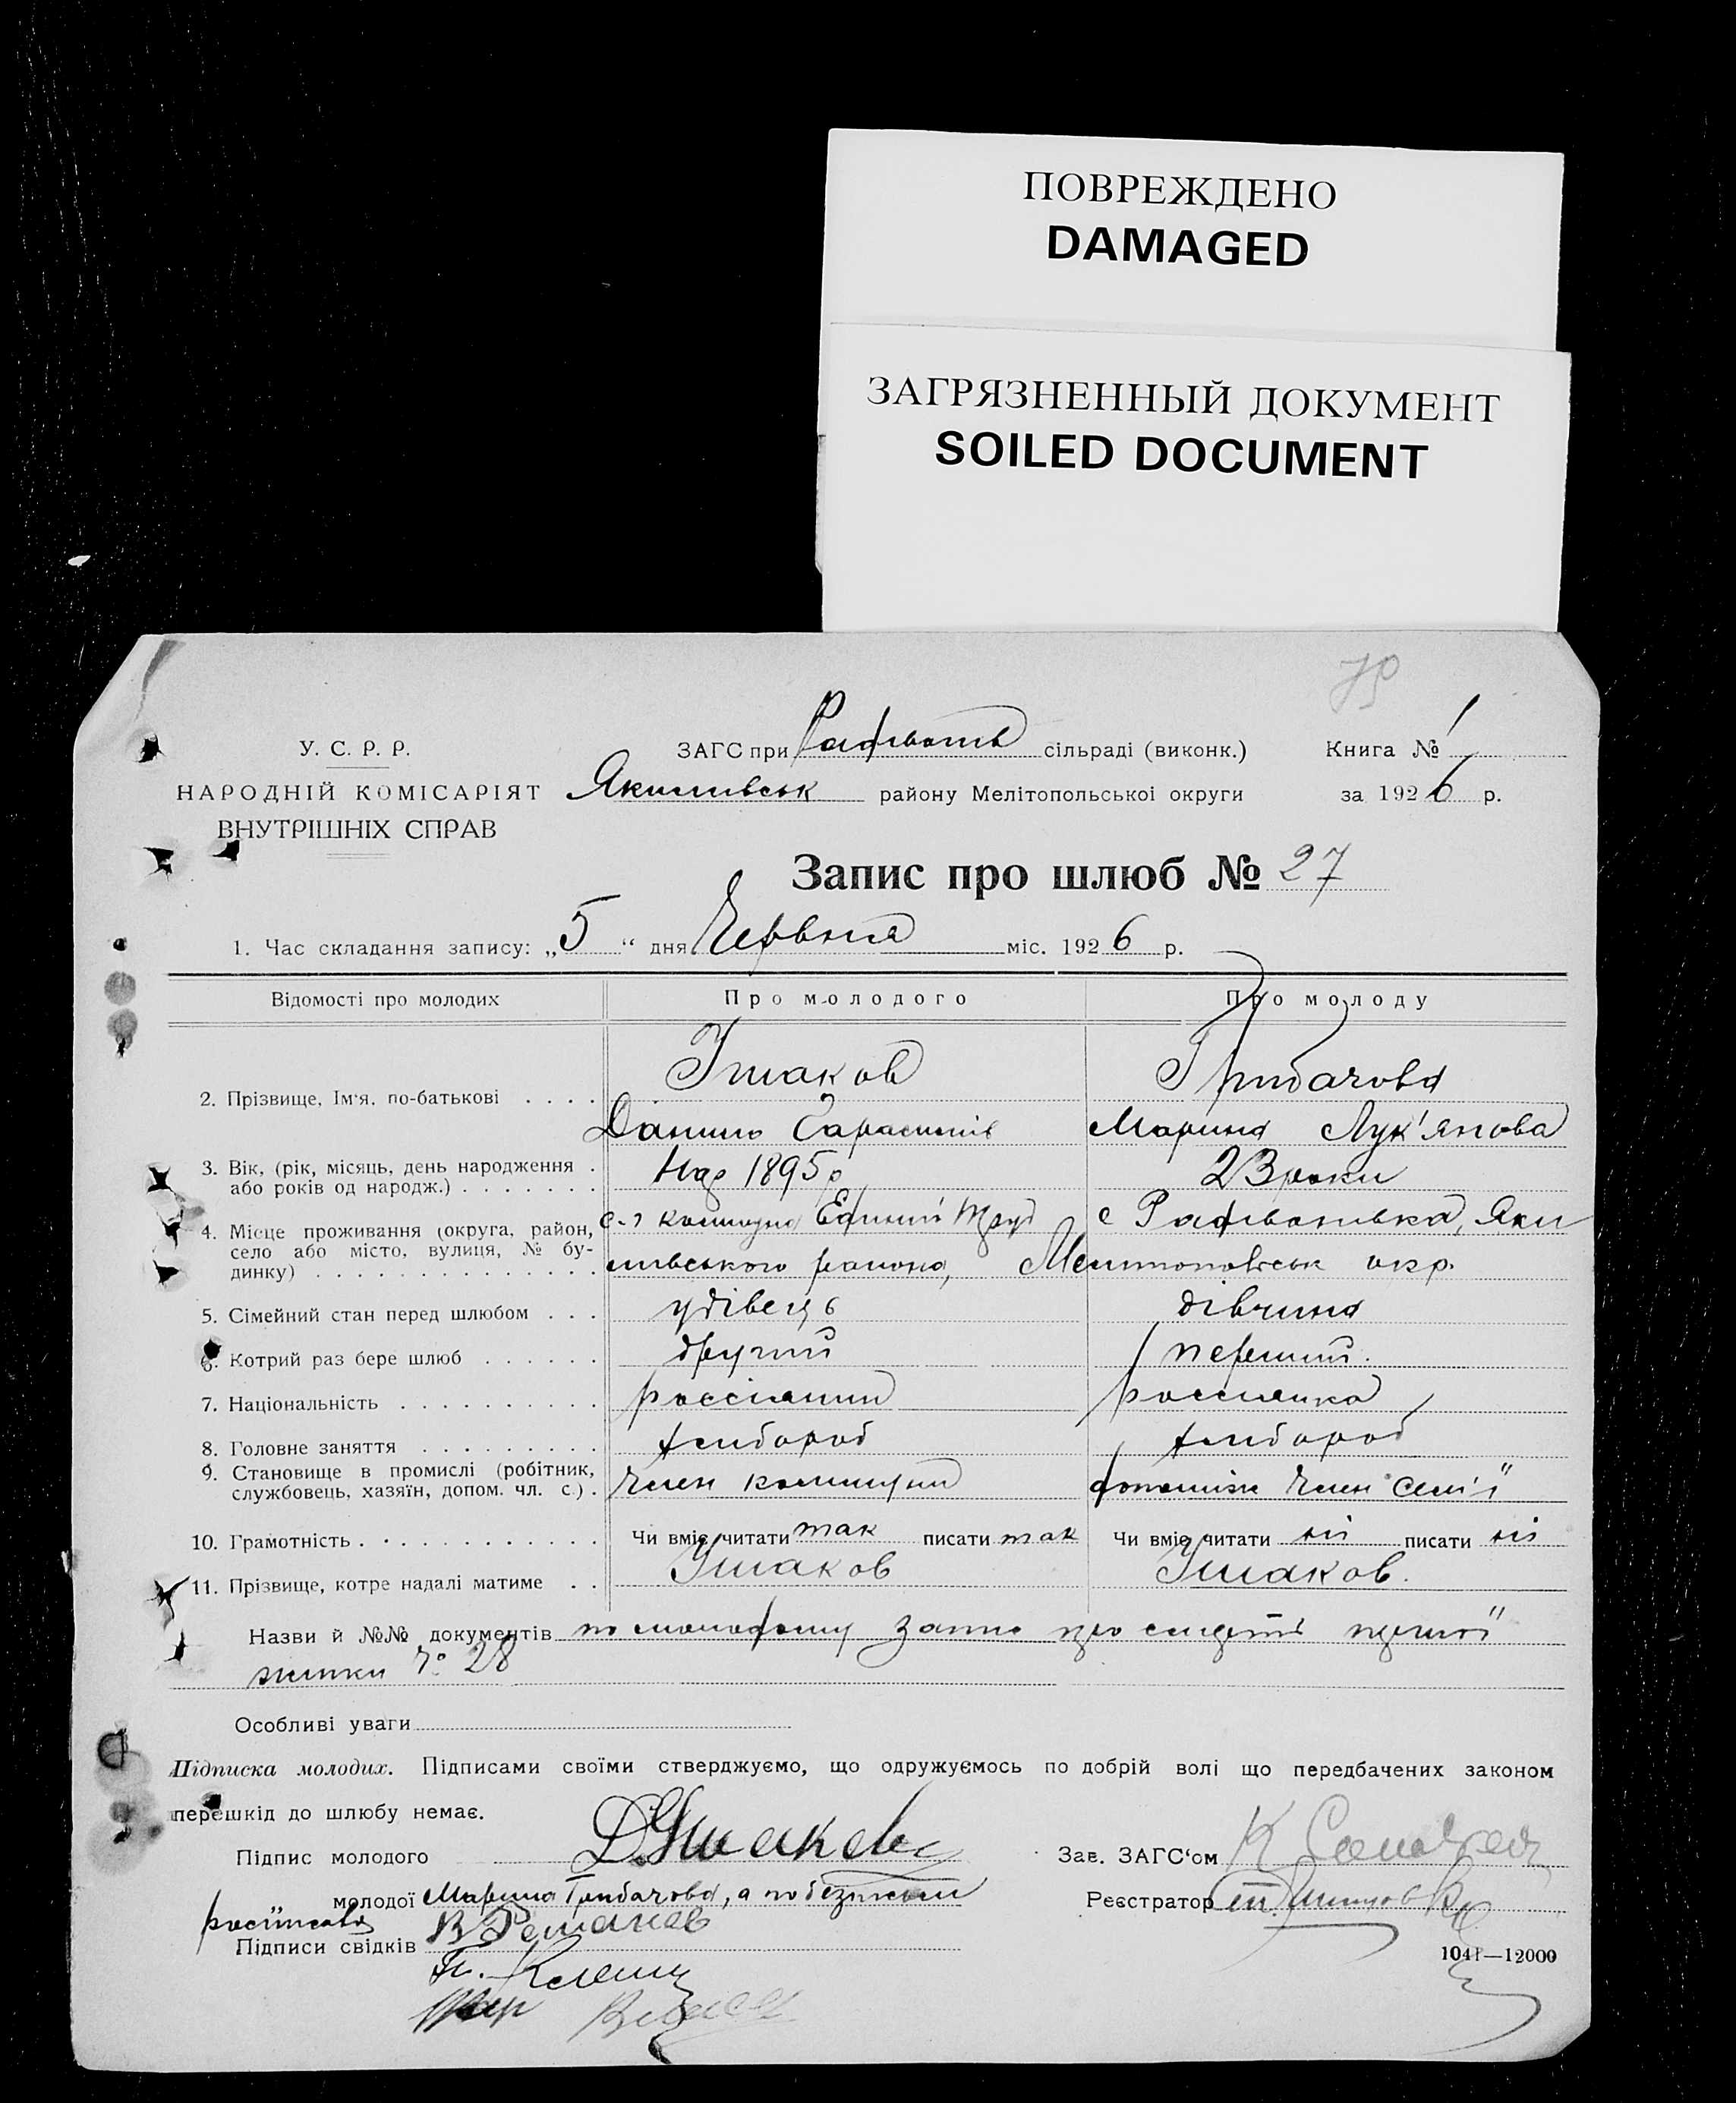 ПОВРЕЖДЕНО
DAMAGED
ЗАГРЯЗНЕННЫЙ ДОКУМЕНТ
SOILED DOCUMENT
У. С. Р. Р.
НАРОДНІЙ КОМІСАРІЯТ
ВНУТРІШНІХ СПРАВ
ЗАГС при сільраді (виконк.)
Якимівськ району Мелітопольської округи
Книга № 1
за 1926 р.
Запис про шлюб № 27
1. Час складання запису: „5“ дня Червня міс. 1926 р.
Відомості про молодих Про молодого Про молоду
2. Прізвище, Ім'я, по-батькові . . . . Ушаков Грибачова
Данило Марина Лук'янова
3. Вік, (рік, місяць, день народження . або років од народж.) . . . . . . . Нар 1895 р 23 роки
4. Місце проживання (округа, район, село або місто, вулиця, № будинку) . . . . . . . . . . . . . . . с-г комуна Единий Труд с , Яки
мівського района, Мелитопольськ окр.
5. Сімейний стан перед шлюбом . . . удівець дівчина
6. Котрий раз бере шлюб . . . . . . другий перший.
7. Національність . . . . . . . . . . россіянин россиянка
8. Головне заняття . . . . . . . . . хлібороб хлібороб
9. Становище в промислі (робітник, службовець, хазяїн, допом. чл. с.) . Член коммуни член семії
10. Грамотність . . . . . . . . . . . Чи вміє читати так писати так Чи вміє читати ні писати ні
11. Прізвище, котре надалі матиме . . Ушаков Ушаков.
Назви й №№ документів запис про смерть
жінки № 28
Особливі уваги
Підписка молодих. Підписами своїми стверджуємо, що одружуємось по добрій волі що передбачених законом
перешкід до шлюбу немає.
Підпис молодого Д. Ушаков
Зав. ЗАГС'ом К
молодої Марина Грибачова, а по
Реєстратор
Підписи свідків В
104f—12000